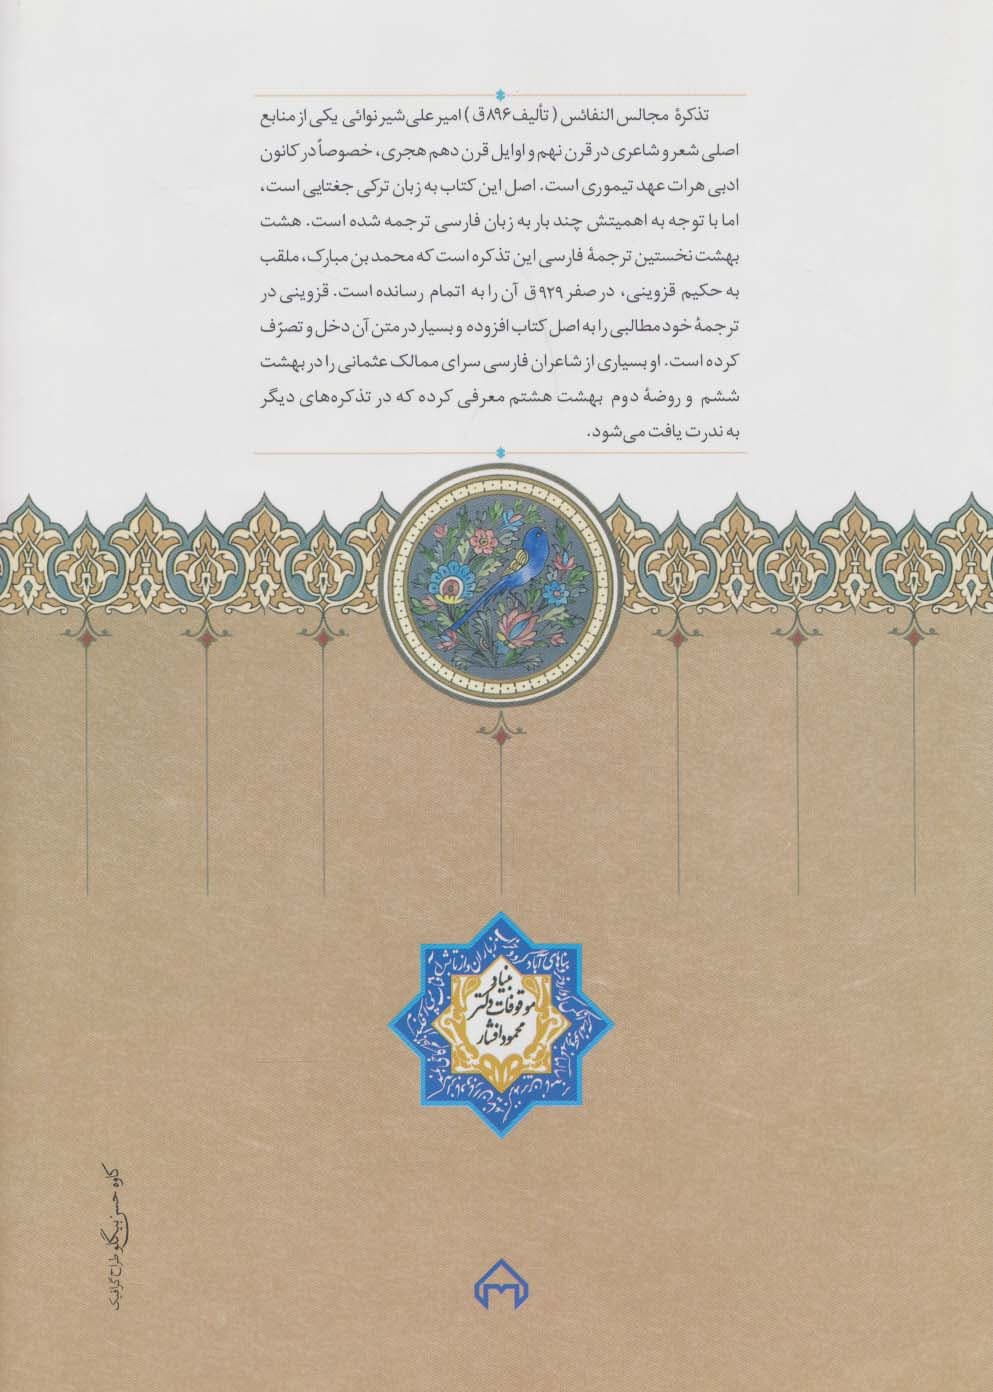 تذکرهٔ مجالس النفائس (تألیف ۸۹۶ق) امیر علی‌شیر نوائی یکی از منابع
اصلی شعر و شاعری در قرن نهم و اوایل قرن دهم هجری، خصوصاً در کانون
ادبی هرات عهد تیموری است. اصل این کتاب به زبان ترکی جغتایی است،
اما با توجه به اهمیتش چند بار به زبان فارسی ترجمه شده است. هشت
بهشت نخستین ترجمهٔ فارسی این تذکره است که محمد بن مبارک، ملقب
به حکیم قزوینی، در صفر ۹۲۹ق آن را به اتمام رسانده است. قزوینی در
ترجمهٔ خود مطالبی را به اصل کتاب افزوده و بسیار در متن آن دخل و تصرّف
کرده است. او بسیاری از شاعران فارسی سرای ممالک عثمانی را در بهشت
ششم و روضهٔ دوم بهشت هشتم معرفی کرده که در تذکره‌های دیگر
به ندرت یافت می‌شود.
بنیاد
موقوفات دکتر
محمود افشار
کاوه حسن بیگلو طراح گرافیک